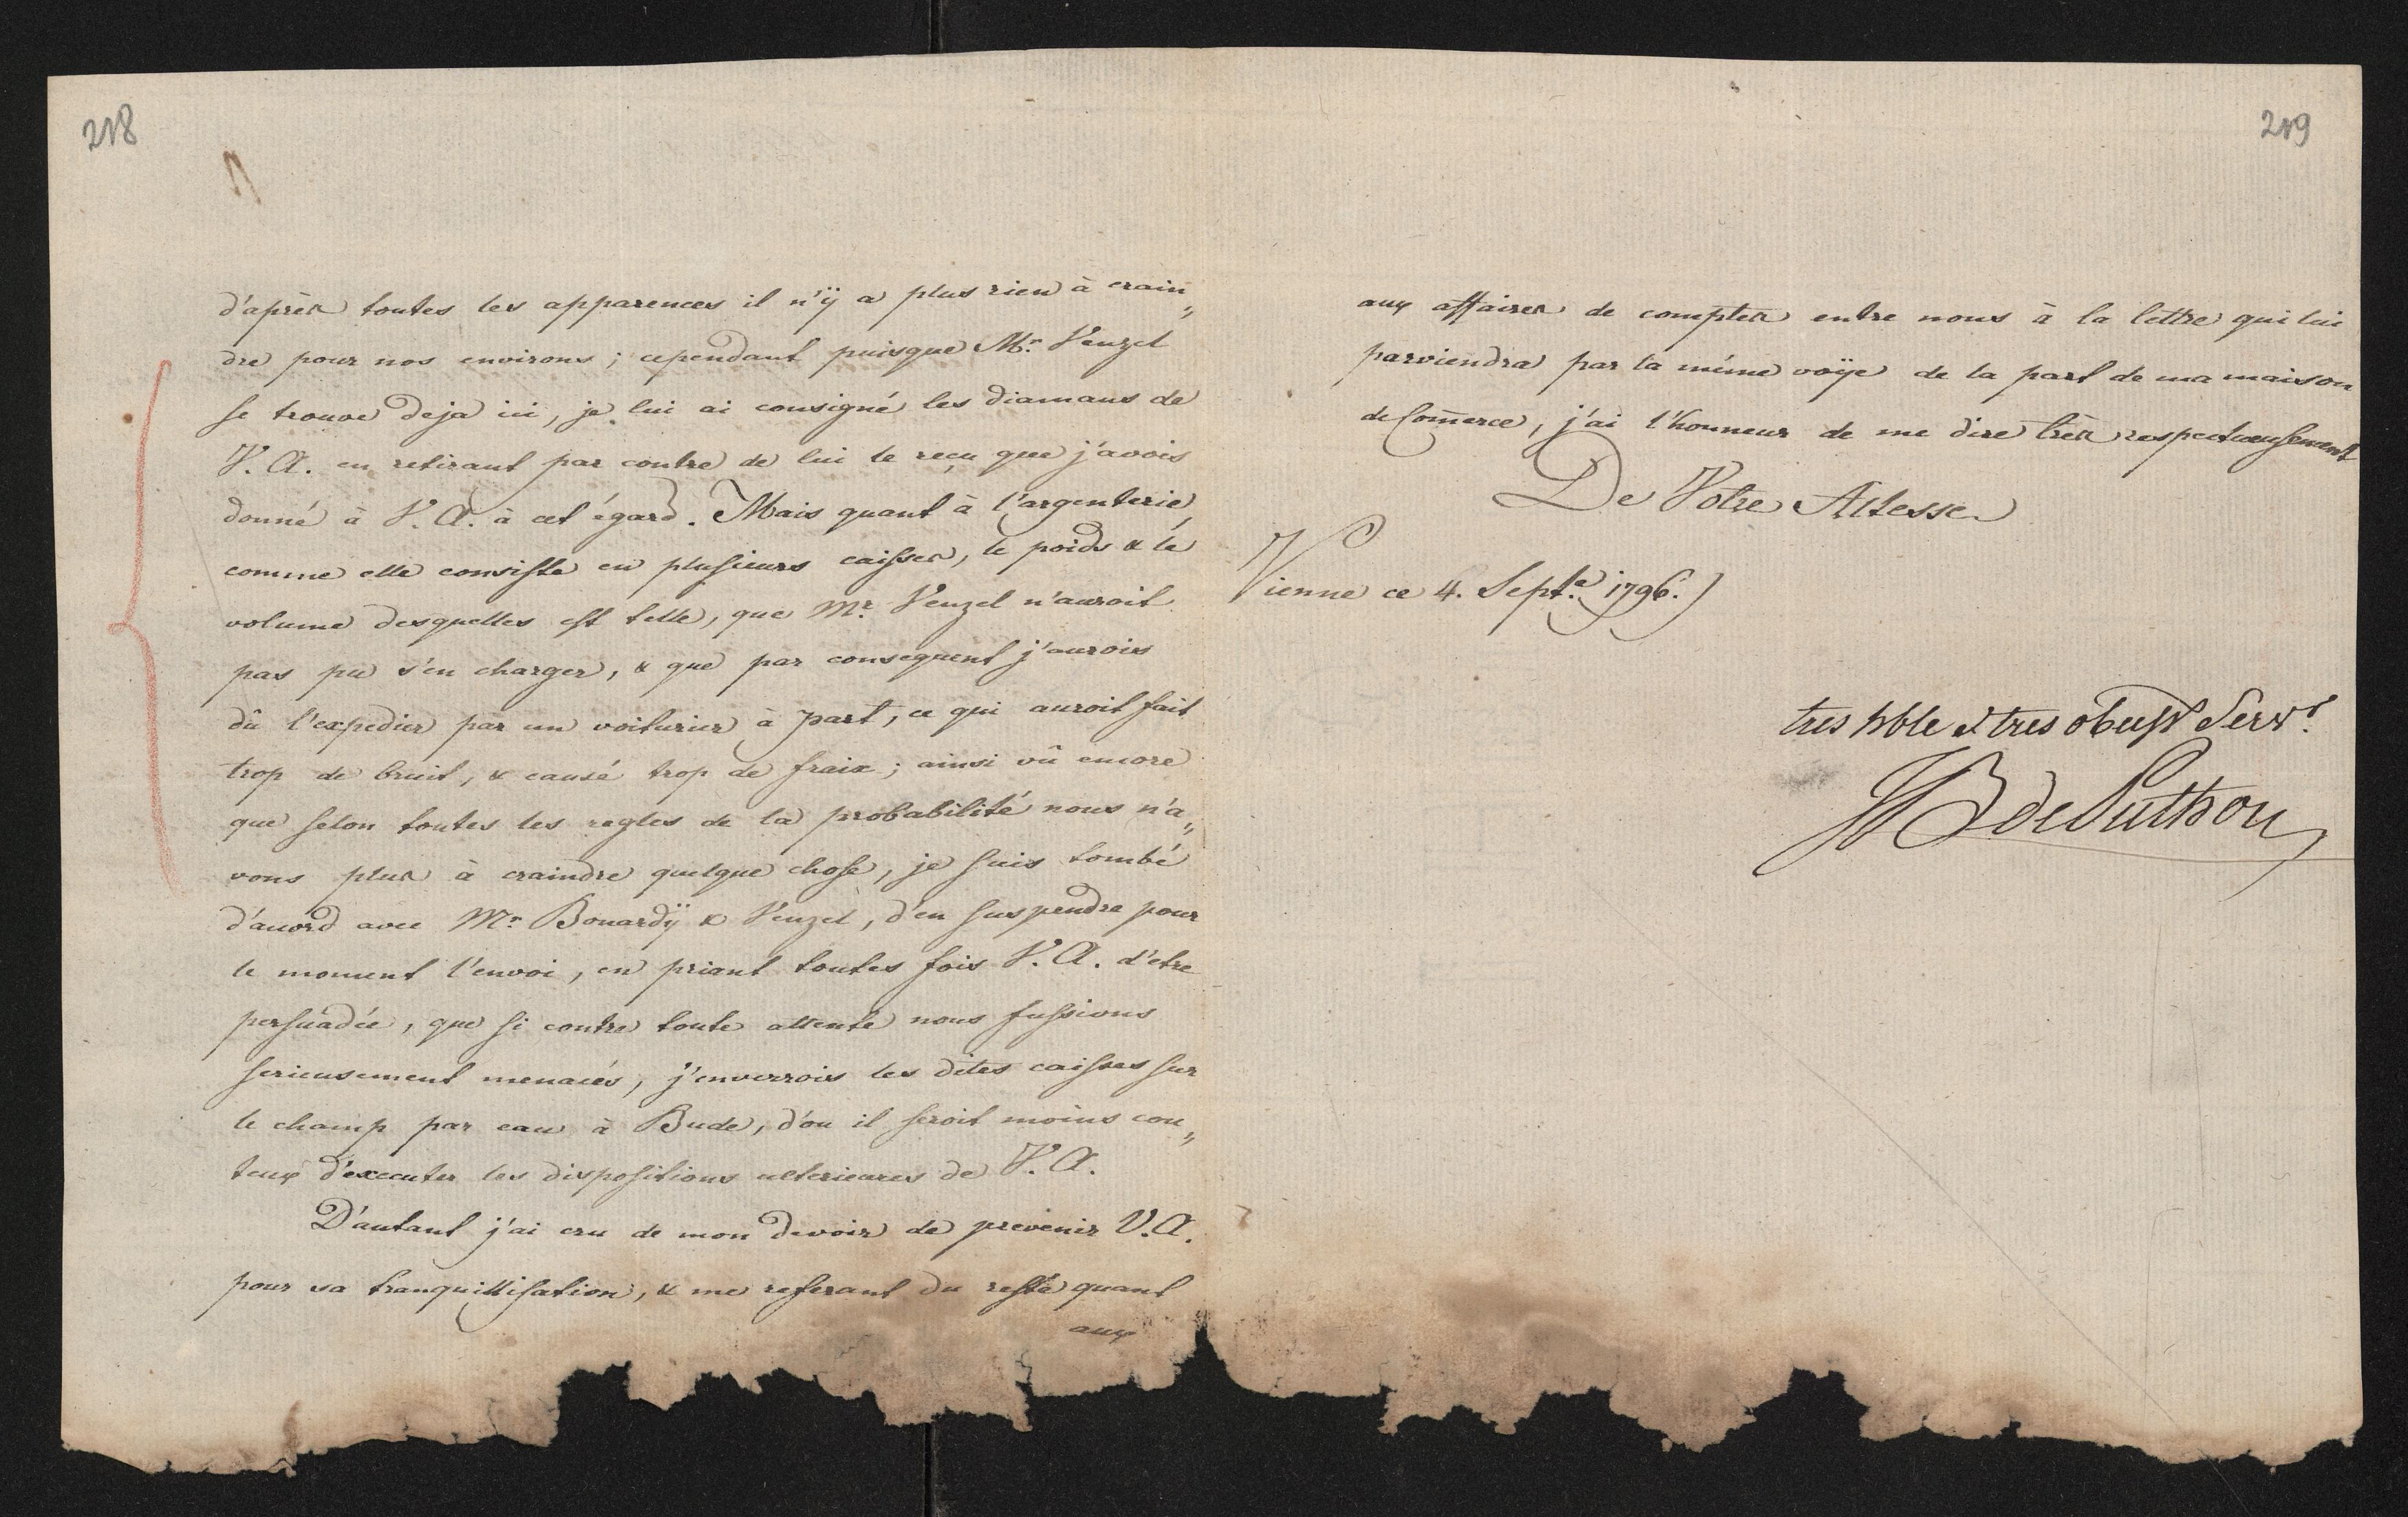 218
d'après toutes les apparences il n'ÿ a plus rien à crain„
dre pour nos environs ; cependant puisque Mr. Venzel
se trouve deja ici, je lui ai consigné les diamans de
V. A. en retirant par contre de lui le reçu que j'avois
donné à V. A. à cet égard. Mais quant à l'argenterie,
comme elle consiste en plusieurs caisses, le poids & le
volume desquelles est telle, que Mr. Venzel n'auroit
pas pu s'en charger, & que par consequent j'aurois
dû l'expedier par un voiturier à part, ce qui auroit fait
trop de bruit, & causé trop de fraix ; ainsi vû encore
que selon toutes les regles de la probabilité nous n'a„
vons plus à craindre quelque chose, je suis tombé
d'acord avec Mr. Bonardÿ & Venzel, d'en suspendre pour
le moment l'envoi, en priant toutes fois V. A. d'etre
persuadée, que si contre toute attente nous fussions
serieusement menacés, j'enverrois les dites caisses sur
le champ par eau à Bude, d'ou il seroit moins cou„
teux d'executer les dispositions ulterieures de V. A.
D'autant j'ai cru de mon devoir de prevenir V. A.
pour sa tranquillisation, & me referant du reste quant
aux
219
aux affaires de comptes entre nous à la lettre qui lui
parviendra par la même voÿe de la part de ma maison
de Com̄erce, j'ai l'honneur de me dire très respectueusement
De Votre Altesse
Vienne ce 4. Septe. 1796.
tres hble & tres obeisst Servr.
JB de Puthon